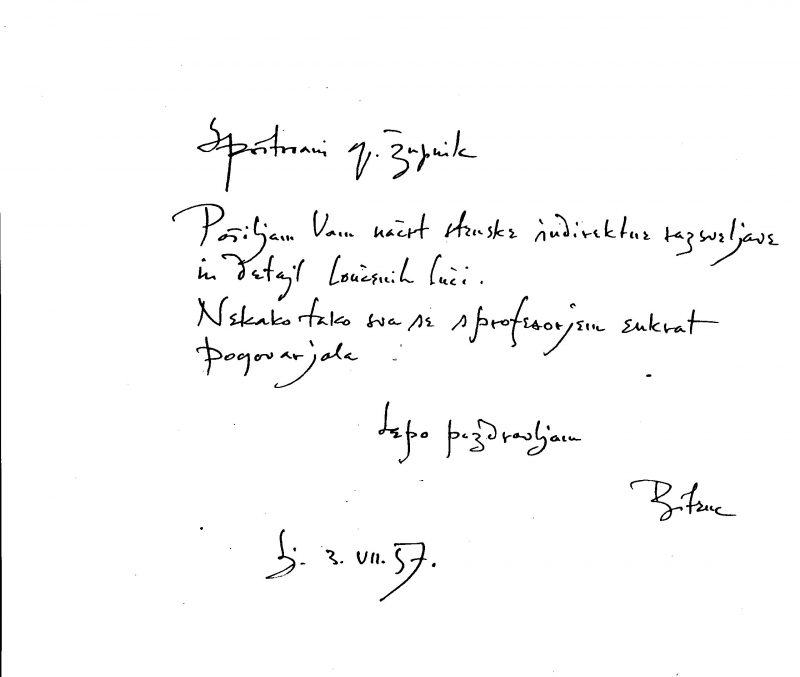 Spoštovani g. Župnik
Pošiljam Vam načrt stenske indirektne razsveljave
in detajl ločenih luči.
Nekako tako sva se s profesorjem enkrat
pogovarjala
Lepo pozdravljam
Bitenc
Lj. 3. VII. 57.